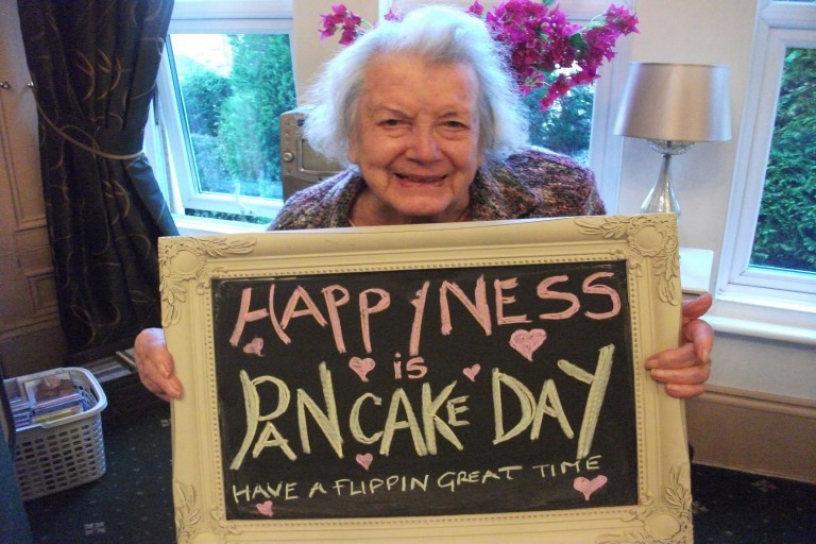 HAPPYNESS
is
PANCAKE DAY
HAVE A FLIPPIN GREAT TIME